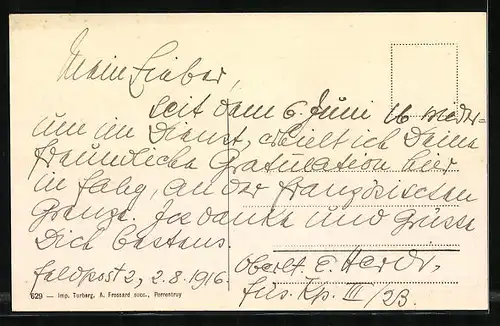 Mein Lieber,
seit dem 6. Juni 16 wieder-
um im Dienst, erhielt ich Deine
freundliche Gratulation hier
in Fahy, an der französischen
Grenze. Ich danke und grüsse
Dich bestens.
Feldpost 2, 2.8.1916.
Oberlt. E.
Füs. Kp. III/23.
629 — Imp. Turberg. A. Frossard succ., Porrentruy